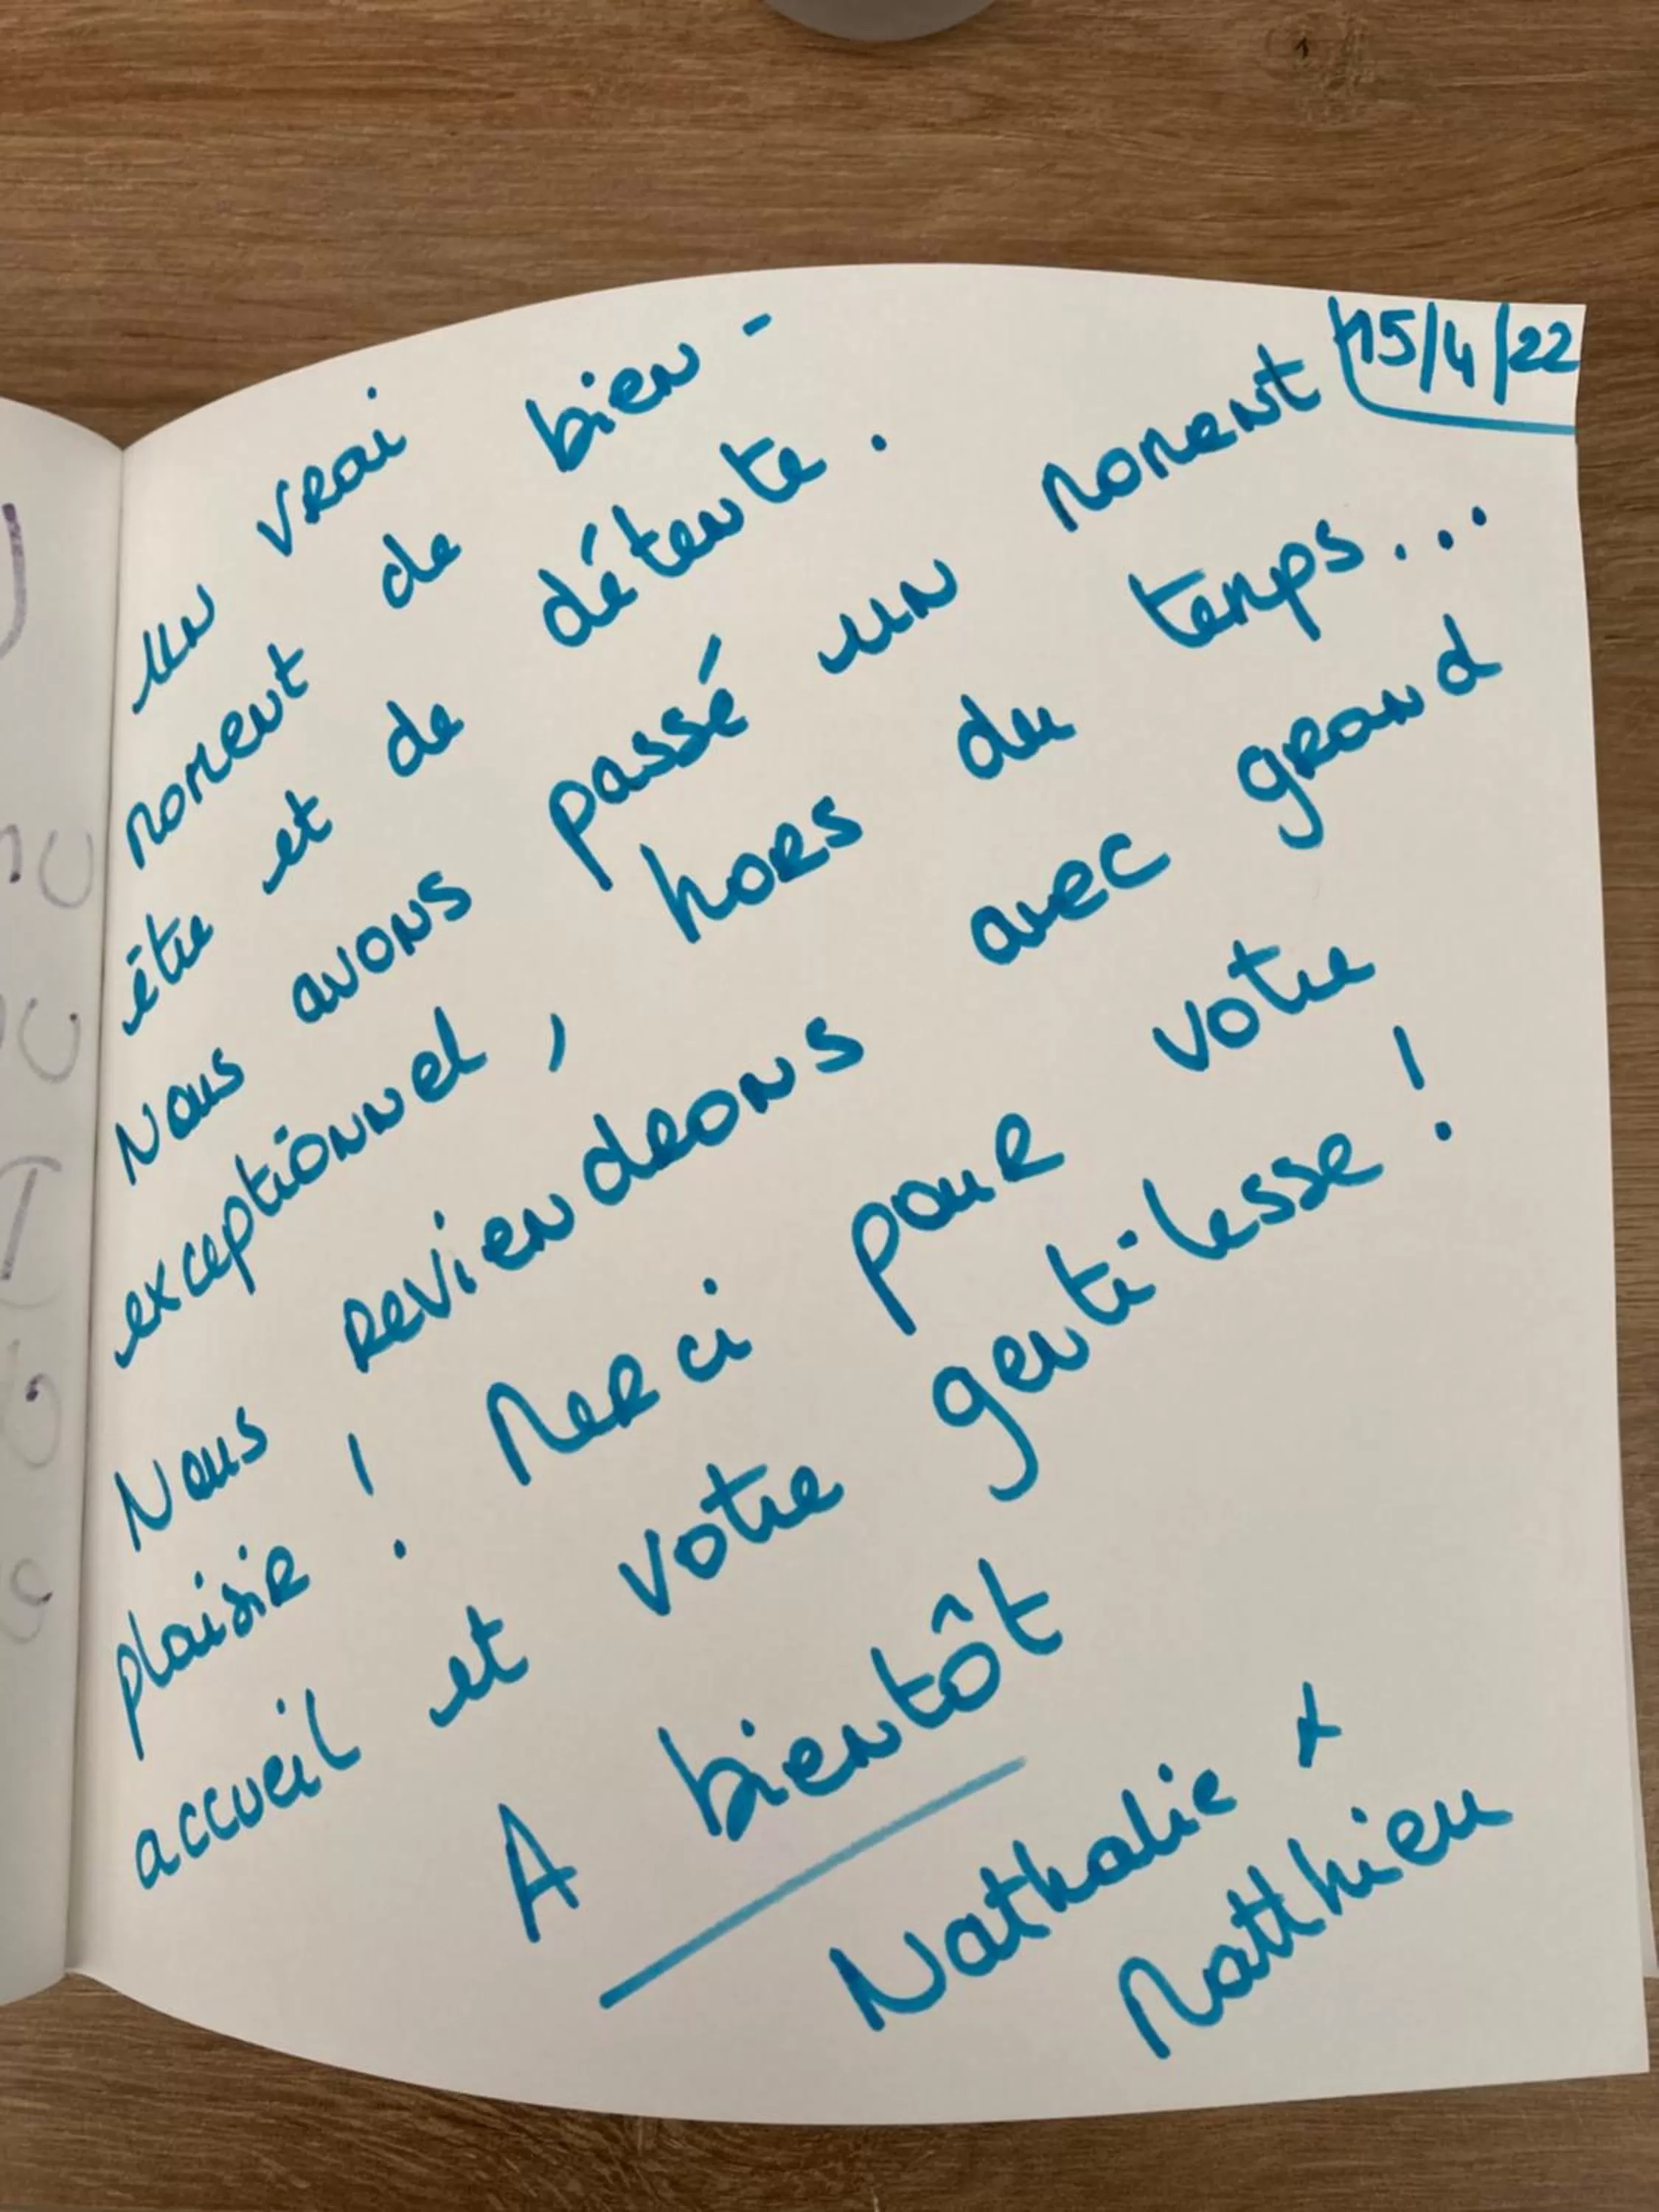 15/4/22
Un vrai
moment de bien-
être et de détente.
Nous avons passé un moment
exceptionnel, hors du temps...
Nous reviendrons avec grand
plaisir ! Merci pour votre
accueil et votre gentilesse !
A bientôt
Nathalie +
Matthieu